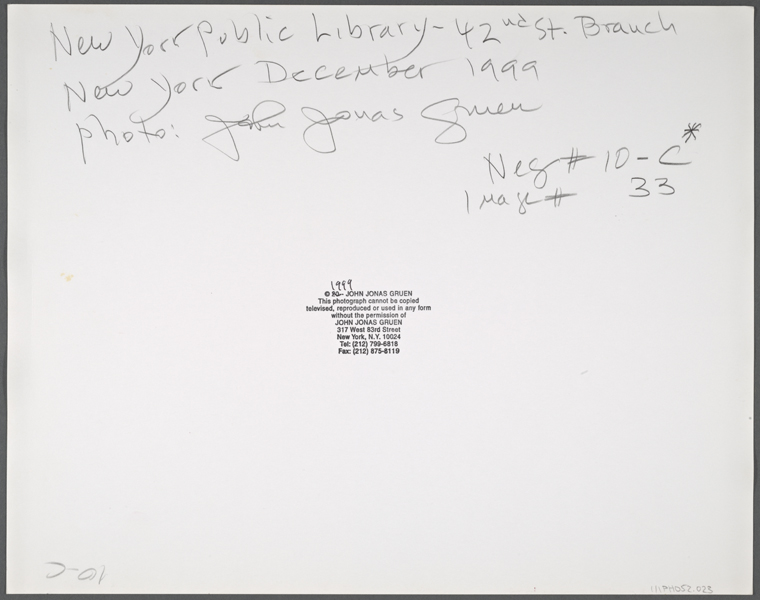 New York Public Library - 42nd St. Branch
New York December 1999
photo: John Jonas Gruen
Neg # 10-C*
Image # 33
1999
© 20 JOHN JONAS GRUEN
This photograph cannot be copied
televised, reproduced or used in any form
without the permission of
JOHN JONAS GRUEN
317 West 83rd Street
New York, N.Y. 10024
Tel: (212) 799-6818
Fax: (212) 875-8119
10-C